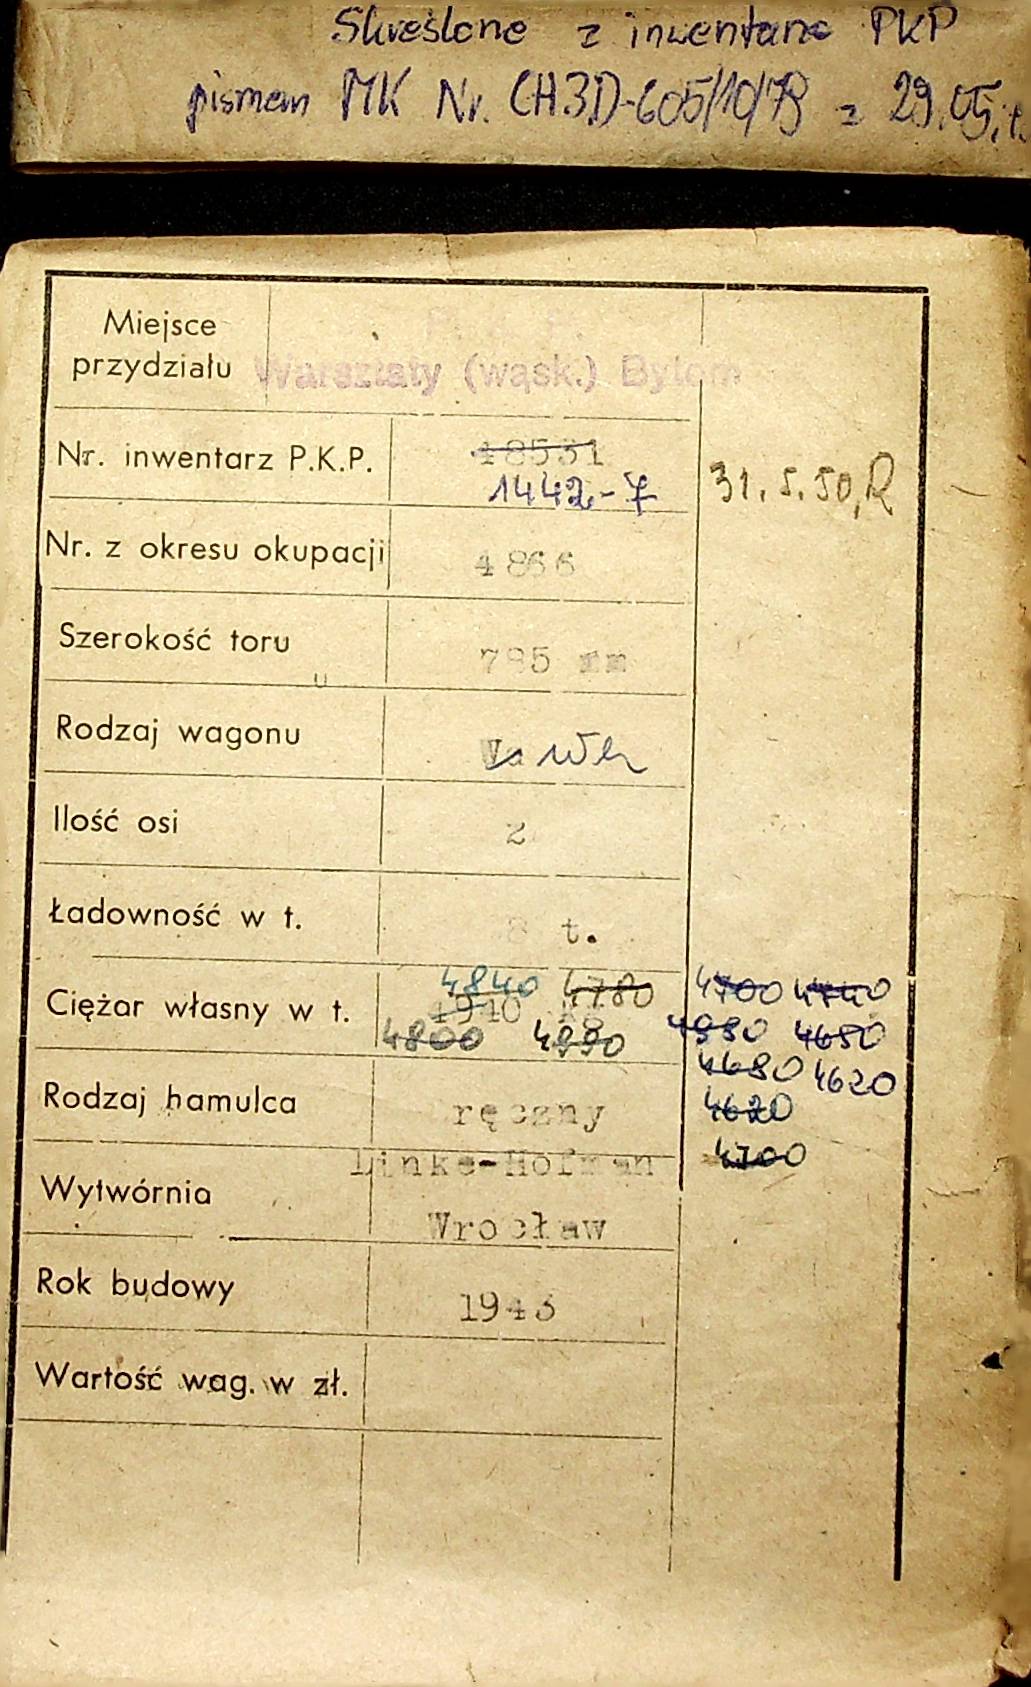 Skreślone z inwentarza PKP
pismem MK Nr. CH3D-605/10/78 z 29.05.
Miejsce
przydziału Warsztaty (wąsk.) Bytom
Nr. inwentarz P.K.P. 18531
1442-7 31.5.50, R
Nr. z okresu okupacji 4866
Szerokość toru 785 mm
Rodzaj wagonu Wh
Ilość osi 2
Ładowność w t. 8 t.
4840 4780 4700 4740
Ciężar własny w t. 4940 kg
4800 4990 4980 4650
4680 4620
Rodzaj hamulca ręczny 4620
Linke-Hofman 4700
Wytwórnia
Wrocław
Rok budowy 1943
Wartość wag. w zł.